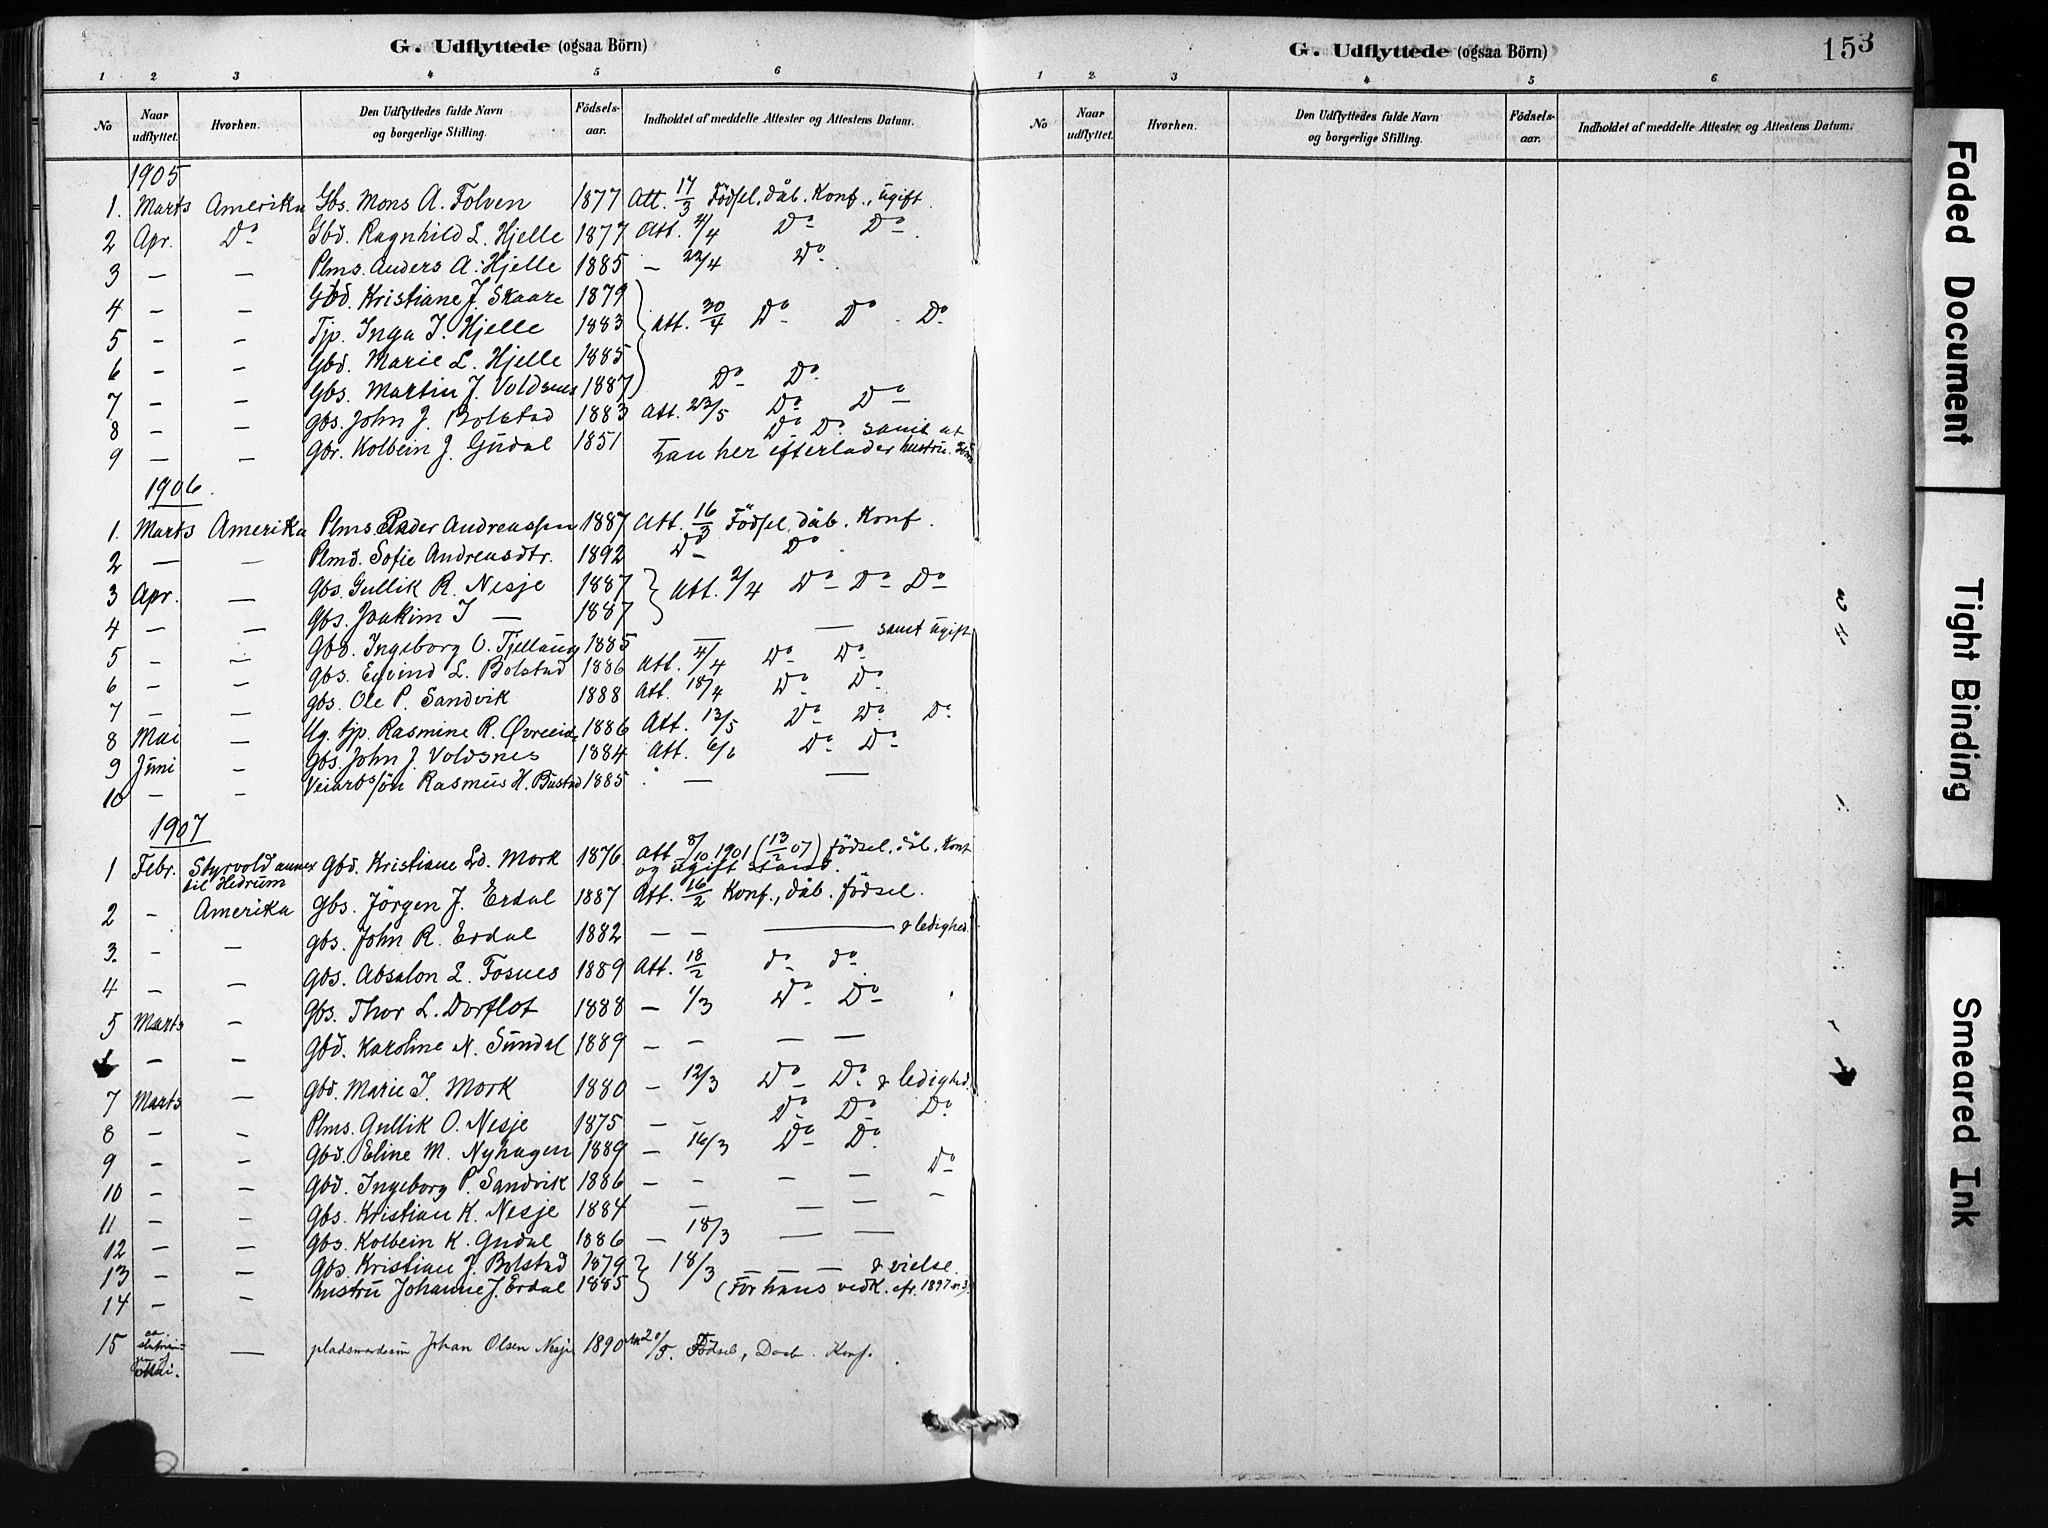 G. Udflyttede (ogsaa Börn)
1 2 3 4 5 6
No Naar udflyttet. Hvorhen. Den Udflyttedes fulde Navn og borgerlige Stilling. Födsels-aar. Indholdet af meddelte Attester og Attestens Datum.
1905
1. Marts Amerika Gbs. Mons A. Folven 1877 Att. 17/3 Födsel, dåb. Konf., ugift.
2 Apr. Do Gbd. Ragnhild L. Hjelle 1877 Att. 4/4 Do Do
3 — — Plms. Anders A. Hjelle 1885 — 22/4 Do
4 — — Gbd. Kristiane J. Skaare 1879
5 — — Tjp. Inga I. Hjelle 1883 Att. 30/4 Do Do Do
6 — — Gbd. Marie L. Hjelle 1885
7 — — Gbs. Martin J. Voldsnes 1887 Do Do
8 — — Gbs. John J. Bolstad 1883 Att. 23/5 Do Do
9 — — Gbr. Kolbein J. Gudal 1851 Do Do samt at
han her efterlader hustru
1906.
1. Marts Amerika Plms. Peder Andreassen 1887 Att. 16/3 Födsel, dåb. Konf.
2 — — Plmd. Sofie Andreasdtr. 1892 Do Do
3 Apr. — Gbs. Gullik R. Nesje 1887 Att. 2/4 Do Do Do
4 — — Gbs. Joakim I — 1887
5 — — Gbd. Ingeborg O. Fjellaug 1885 — — samt ugift
6 — — Gbs. Eivind L. Bolstad 1886 Att. 4/4 Do Do
7 — — Gbs. Ole P. Sandvik 1888 Att. 18/4 Do Do
8 Mai — Ug. tjp. Rasmine R. Øvreeide 1886 Att. 13/5 Do Do Do
9 Juni — Gbs. John J. Voldsnes 1884 Att. 6/6 Do Do
10 — — Veiarbs/ön Rasmus H. Bustad 1885 — —
1907
1 Febr. Styrvold annex til Hedrum Gbd. Kristiane Ld. Mork 1876. Att. 8/10 1901 (13/2 07) födsel, dåb, Konf
og ugift stand.
2 — Amerika Gbs. Jörgen J. Erdal 1887 Att. 16/2 Konf., dåb. födsel.
3. — — Gbs. John R. Erdal 1882 — — — & ledighed.
4 — — Gbs. Absalon L. Fosnes 1889 Att. 18/2 do do
5 Marts — Gbs. Thor L. Dorflot 1888 — 1/3 Do Do
— — Gbd. Karoline N. Sundal 1889 — — — —
7 Marts — Gbd. Marie I. Mork 1880 — 12/3 Do Do & ledighed.
8 — — Plms. Gullik O. Nesje 1875 — — Do Do Do
9 — — Gbd. Eline M. Nyhagen 1889 — 16/3 Do Do
10 — — Gbd. Ingeborg P. Sandvik 1886 — — — — Do
11 — — Gbs. Kristian K. Nesje 1884 — — — —
12 — — Gbs. Kolbein K. Gudal 1886 — 18/3 — —
13 — — Gbs. Kristian J. Bolstad 1879 18/3 — — & vielse.
14 — — hustru Johanne J. Erdal 1885 (For hans vedk. cfr. 1897 n. 3.)
15 Mai. — pladsmandssön Johan Olsen Nesje 1890 20/5. Födsel, Daab. Konf.
G. Udflyttede (ogsaa Börn)
153
1 2 3 4 5 6
No Naar udflyttet. Hvorhen. Den Udflyttedes fulde Navn og borgerlige Stilling. Födsels-aar. Indholdet af meddelte Attester og Attestens Datum.
Faded Document
Tight Binding
Smeared Ink